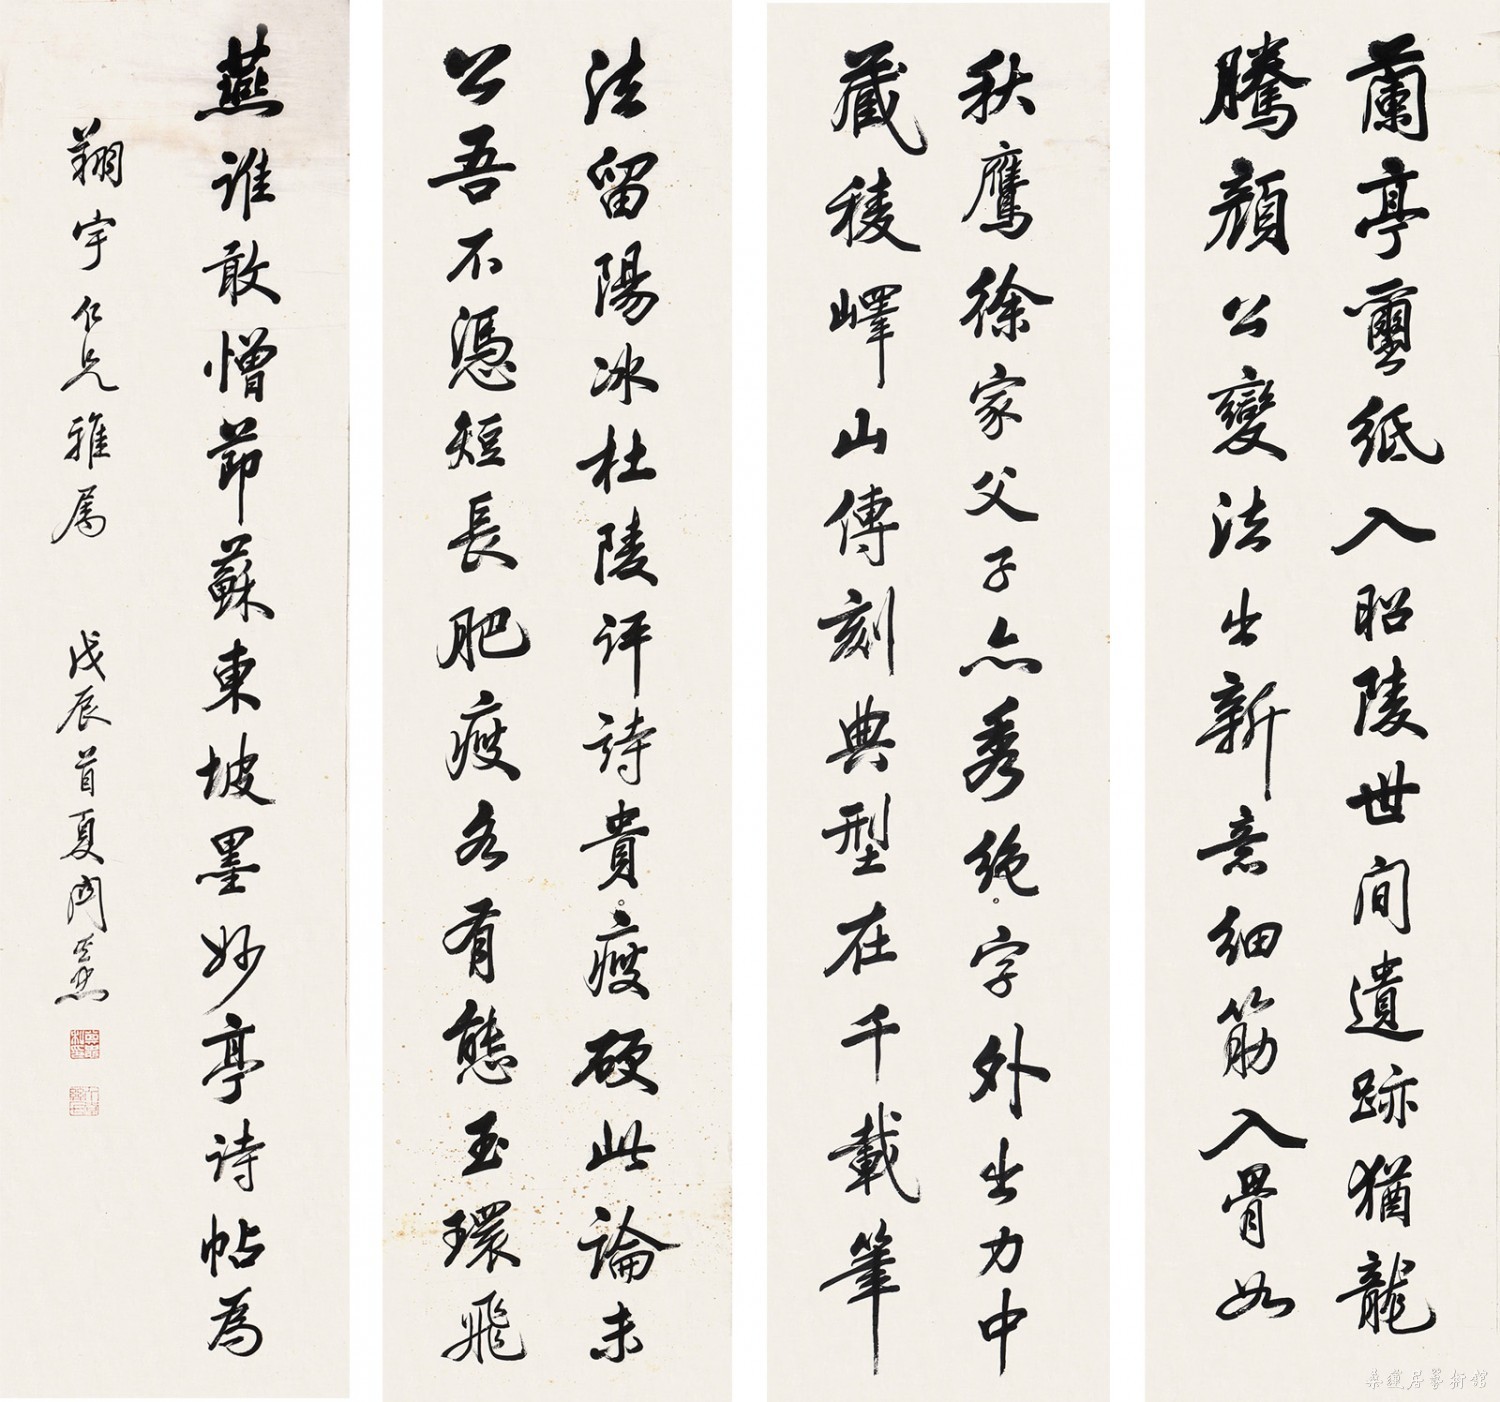 蘭亭蠒紙入昭陵世間遺跡猶龍
騰顔公變法出新意細筋入骨如
秋鷹徐家父子亦秀絶字外出力中
藏稜嶧山傳刻典型在千載筆
法留陽冰杜陵評詩貴瘦硬此論未
公吾不憑短長肥瘦各有態玉環飛
燕誰敢憎節蘇東坡墨妙亭詩帖為
翔宇仁兄雅属 戊辰首夏
居藝術館